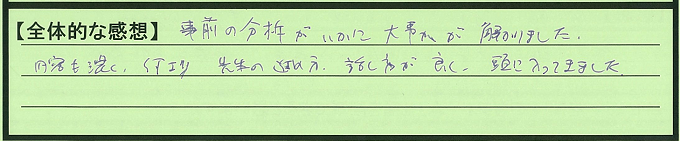 【全体的な感想】 事前の分析がいかに大事かが解かりました。
内容も濃く、何より先生の進め方、話し方が良く、頭に入ってきました。